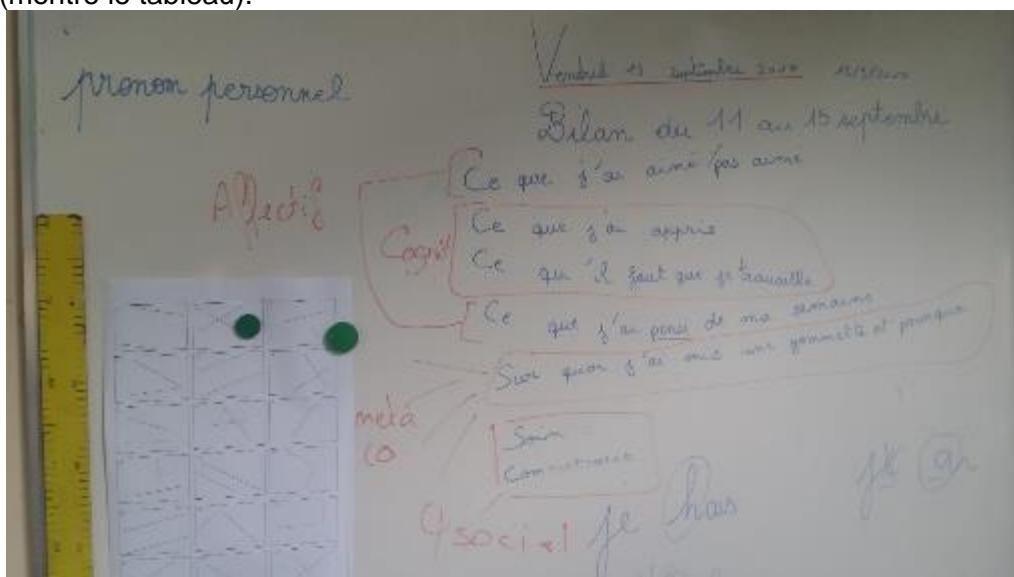 (montre le tableau).
pronom personnel
Vendredi 15 septembre
Bilan du 11 au 15 septembre
Affectif
Ce que j'ai aimé/pas aimé
Cognitif
Ce que j'ai appris
Ce qu'il faut que je travaille
Ce que j'ai pensé de ma semaine
Sur quoi j'ai mis une gommette et pourquoi
méta
co
Soin
Comportement
social
je has